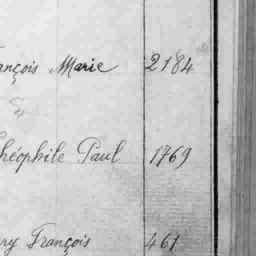 ançois Marie 2184
héophile Paul 1769
ry François 461